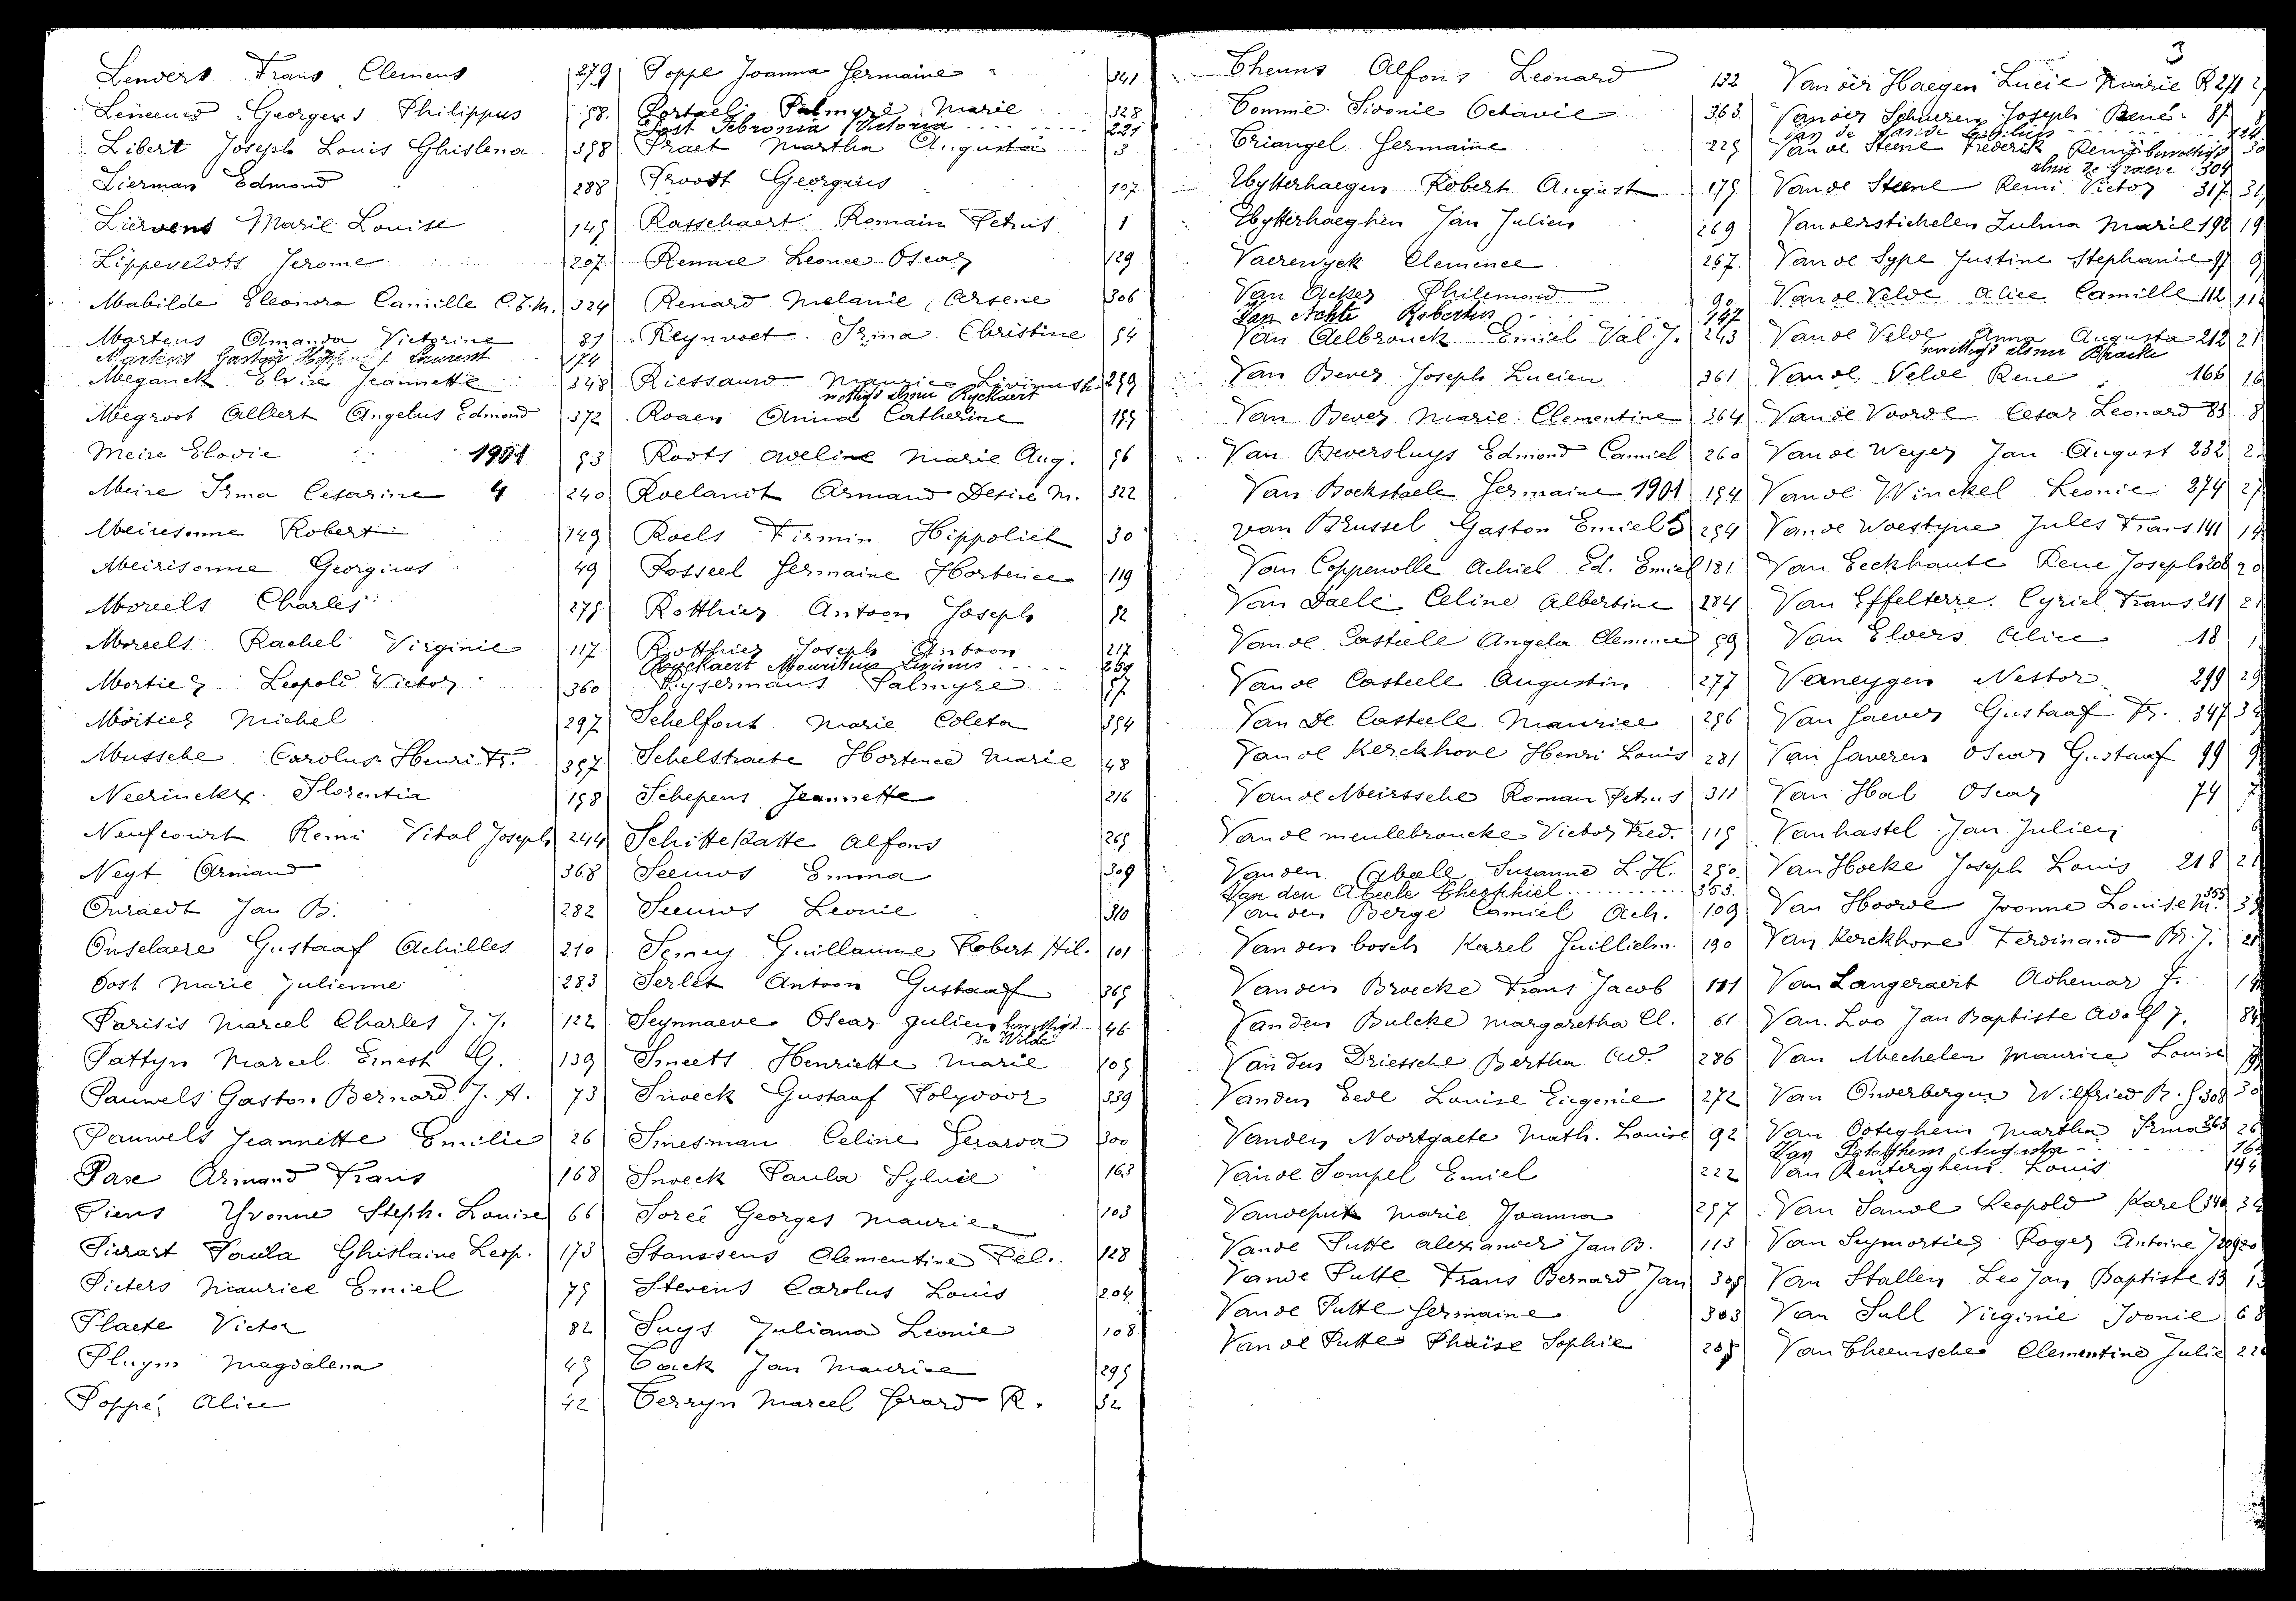 Lenders Frans Clemens 279
Leneeuw Georges Philippus 58.
Libert Joseph Louis Ghislena 358
Lierman Edmond 288
Liervens Marie Louise 145
Lippeveldts Jerome 207
Mabilde Eleonora Camille C.E.M. 324
Martens Amanda Victorine 81
Martens Gaston Laurent 174
Meganck Elvire Jeannette 348
Megroot Albert Angelus Edmond 372
Meire Elodie 1901 53
Meire Irma Cesarine 4 240
Meiresonne Robert 149
Meirisonne Georgius 49
Moreels Charles 275
Moreels Rachel Virginie 117
Mortier Leopold Victor 360
Mortier Michel 297
Mussche Carolus Henri Fr. 357
Neerinckx Florentia 158
Neufcourt Remi Vital Joseph 244
Neyt Armand 368
Onraedt Jan B. 282
Onselaere Gustaaf Achilles 210
Oost Marie Julienne 283
Parisis Marcel Charles J. J. 122
Pattyn Marcel Ernest G. 139
Pauwels Gaston Bernard J. A. 73
Pauwels Jeannette Emilie 26
Pave Armand Frans 168
Piens Yvonne Steph. Louise 66
Pierart Paula Ghislaine Leop. 173
Pieters Maurice Emiel 75
Plaete Victor 82
Pluym Magdalena 45
Poppé Alice 42
Poppe Joanna Germaine 341
Portaels Palmyre Marie 328
Post Febronia Victoria 221
Praet Martha Augusta 3
Proost Georgius 107
Rasschaert Romain Petrus 1
Rennie Leonce Oscar 129
Renard Melanie Arsene 306
Reynvoet Irma Christine 54
Riessauw Maurice Livinus 259
wettigd alsnu Ryckaert
Roaen Anna Catherine 155
Roots Adeline Marie Aug. 56
Roelandt Armand Desire M. 322
Roels Firmin Hippoliet 30
Rosseel Germaine Hortence 119
Rotthier Antoon Joseph 52
Rotthier Joseph Antoon 217
Ryckaert Mauritius Livinus 259
Rysermans Palmyre 57
Schelfout Marie Coleta 354
Schelstraete Hortence Marie 48
Schepens Jeannette 216
Schittekatte Alfons 265
Seeuws Emma 309
Seeuws Leonie 310
Semey Guillaume Robert Hil. 101
Serlet Antoon Gustaaf 365
Seynnaeve Oscar Julien 46
De Wilde
Smeets Henriette Marie 105
Smoeck Gustaaf Polydoor 339
Smesman Celine Gerarda 300
Snoeck Paula Sylvie 163
Soreé Georges Maurice 103
Stanssens Clementine Pel. 128
Stevens Carolus Louis 204
Suys Juliana Leonie 108
Tack Jan Maurice 295
Terryn Marcel Gerard R. 32
3
Theuns Alfons Leonard 132
Tommie Sidonie Octavie 363
Triangel Germaine 225
Uytterhaegen Robert August 175
Uytterhaeghen Jan Julien 269
Vaerewyck Clemence 267
Van Acker Philemond 90
Van Achte Robertus 147
Van Aelbrouck Emiel Val. J. 243
Van Bever Joseph Lucien 361
Van Bever Marie Clementine 364
Van Beversluys Edmond Camiel 260
Van Bockstaele Germaine 1901 154
van Brussel Gaston Emiel 5 254
Van Coppenolle Achiel Ed. Emiel 181
Van Daele Celine Albertine 284
Van de Casteele Angela Clemence 59
Van de Casteele Augustin 277
Van De Casteele Maurice 256
Van de Kerckhove Henri Louis 281
Van de Meirssche Roman Petrus 311
Van de meulebroucke Victor Fred. 115
Van den Abeele Susanne L. H. 250
Van den Abeele Theophiel 353
Van den Berge Camiel Ach. 109
Van den bosch Karel Guillielm. 190
Van den Broecke Frans Jacob 111
Van den Bulcke Margaretha Cl. 61
Van den Driessche Bertha Ad. 286
Vanden Eede Louise Eugenie 272
Vanden Noortgaete Math. Louise 92
Van de Pompel Emiel 222
Vandeputt Marie Joanna 257
Vande Putte Alexander Jan B. 113
Vande Putte Frans Bernard Jan 305
Van de Putte Germaine 303
Van de Putte Phaïse Sophie 205
Van der Haegen Lucie Marie R 271
Van der Schueren Joseph René 87
Van de Steene Frederik Remi
alsnu De Graeve 304
Van de Steene Remi Victor 317
Van der Stichelen Zulma Marie 198 19
Van de Sype Justine Stephanie 97 9
Van de Velde Alice Camille 112 11
Van de Velde Anna Augusta 212 21
gewettigd alsnu Bracke
Van de Velde Rene 166 16
Van de Voorde Cesar Leonard 85 8
Van de Weyer Jan August 232 2
Van de Winckel Leonie 274 27
Van de Woestyne Jules Frans 141 14
Van Eeckhaute Rene Joseph 208 20
Van Effelterre Cyriel Frans 211 21
Van Elders Alice 18 1
Vaneygen Nestor 299 29
Van Gaever Gustaaf Fr. 347 34
Van Gaveren Oscar Gustaaf 99 9
Van Hal Oscar 74 7
Vanhastel Jan Julien 6
Van Hoeke Joseph Louis 218 21
Van Hoorde Yvonne Louise M. 355 35
Van Kerckhove Ferdinand Br. J. 21
Van Langeraert Adhemar J. 14
Van Loo Jan Baptiste Adolf J. 84
Van Mechelen Maurice Louise
Van Onderbergen Wilfried R. G. 308 30
Van Ooteghem Martha Irma 263 26
Van Renterghem Louis 194
Van Sande Leopold Karel 340 34
Van Seymortier Roger Antoine J 209 20
Van Stallen Leo Jan Baptiste 13 13
Van Sull Virginie Ivonie 68
Van Theemsche Clementine Julie 226